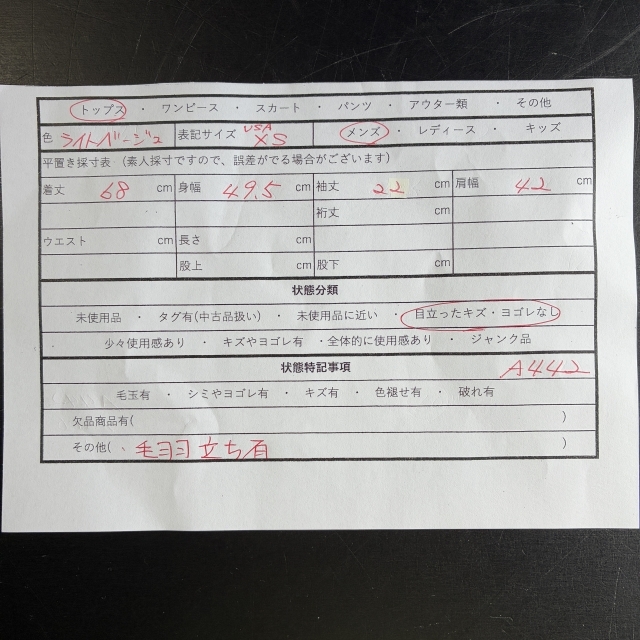 トップス ・ ワンピース ・ スカート ・ パンツ ・ アウター類 ・ その他
色 ライトベージュ 表記サイズ USA XS メンズ ・ レディース ・ キッズ
平置き採寸表 (素人採寸ですので、誤差がでる場合がございます)
着丈 68 cm 身幅 49.5 cm 袖丈 22 cm 肩幅 42 cm
裄丈 cm
ウエスト cm 長さ cm cm cm
cm 股上 cm 股下 cm
状態分類
未使用品 ・ タグ有(中古品扱い) ・ 未使用品に近い ・ 目立ったキズ・ヨゴレなし
少々使用感あり ・ キズやヨゴレ有 ・全体的に使用感あり ・ ジャンク品
状態特記事項 A442
毛玉有 ・ シミやヨゴレ有 ・ キズ有 ・ 色褪せ有 ・ 破れ有
欠品商品有( )
その他( 、毛羽立ち有 )